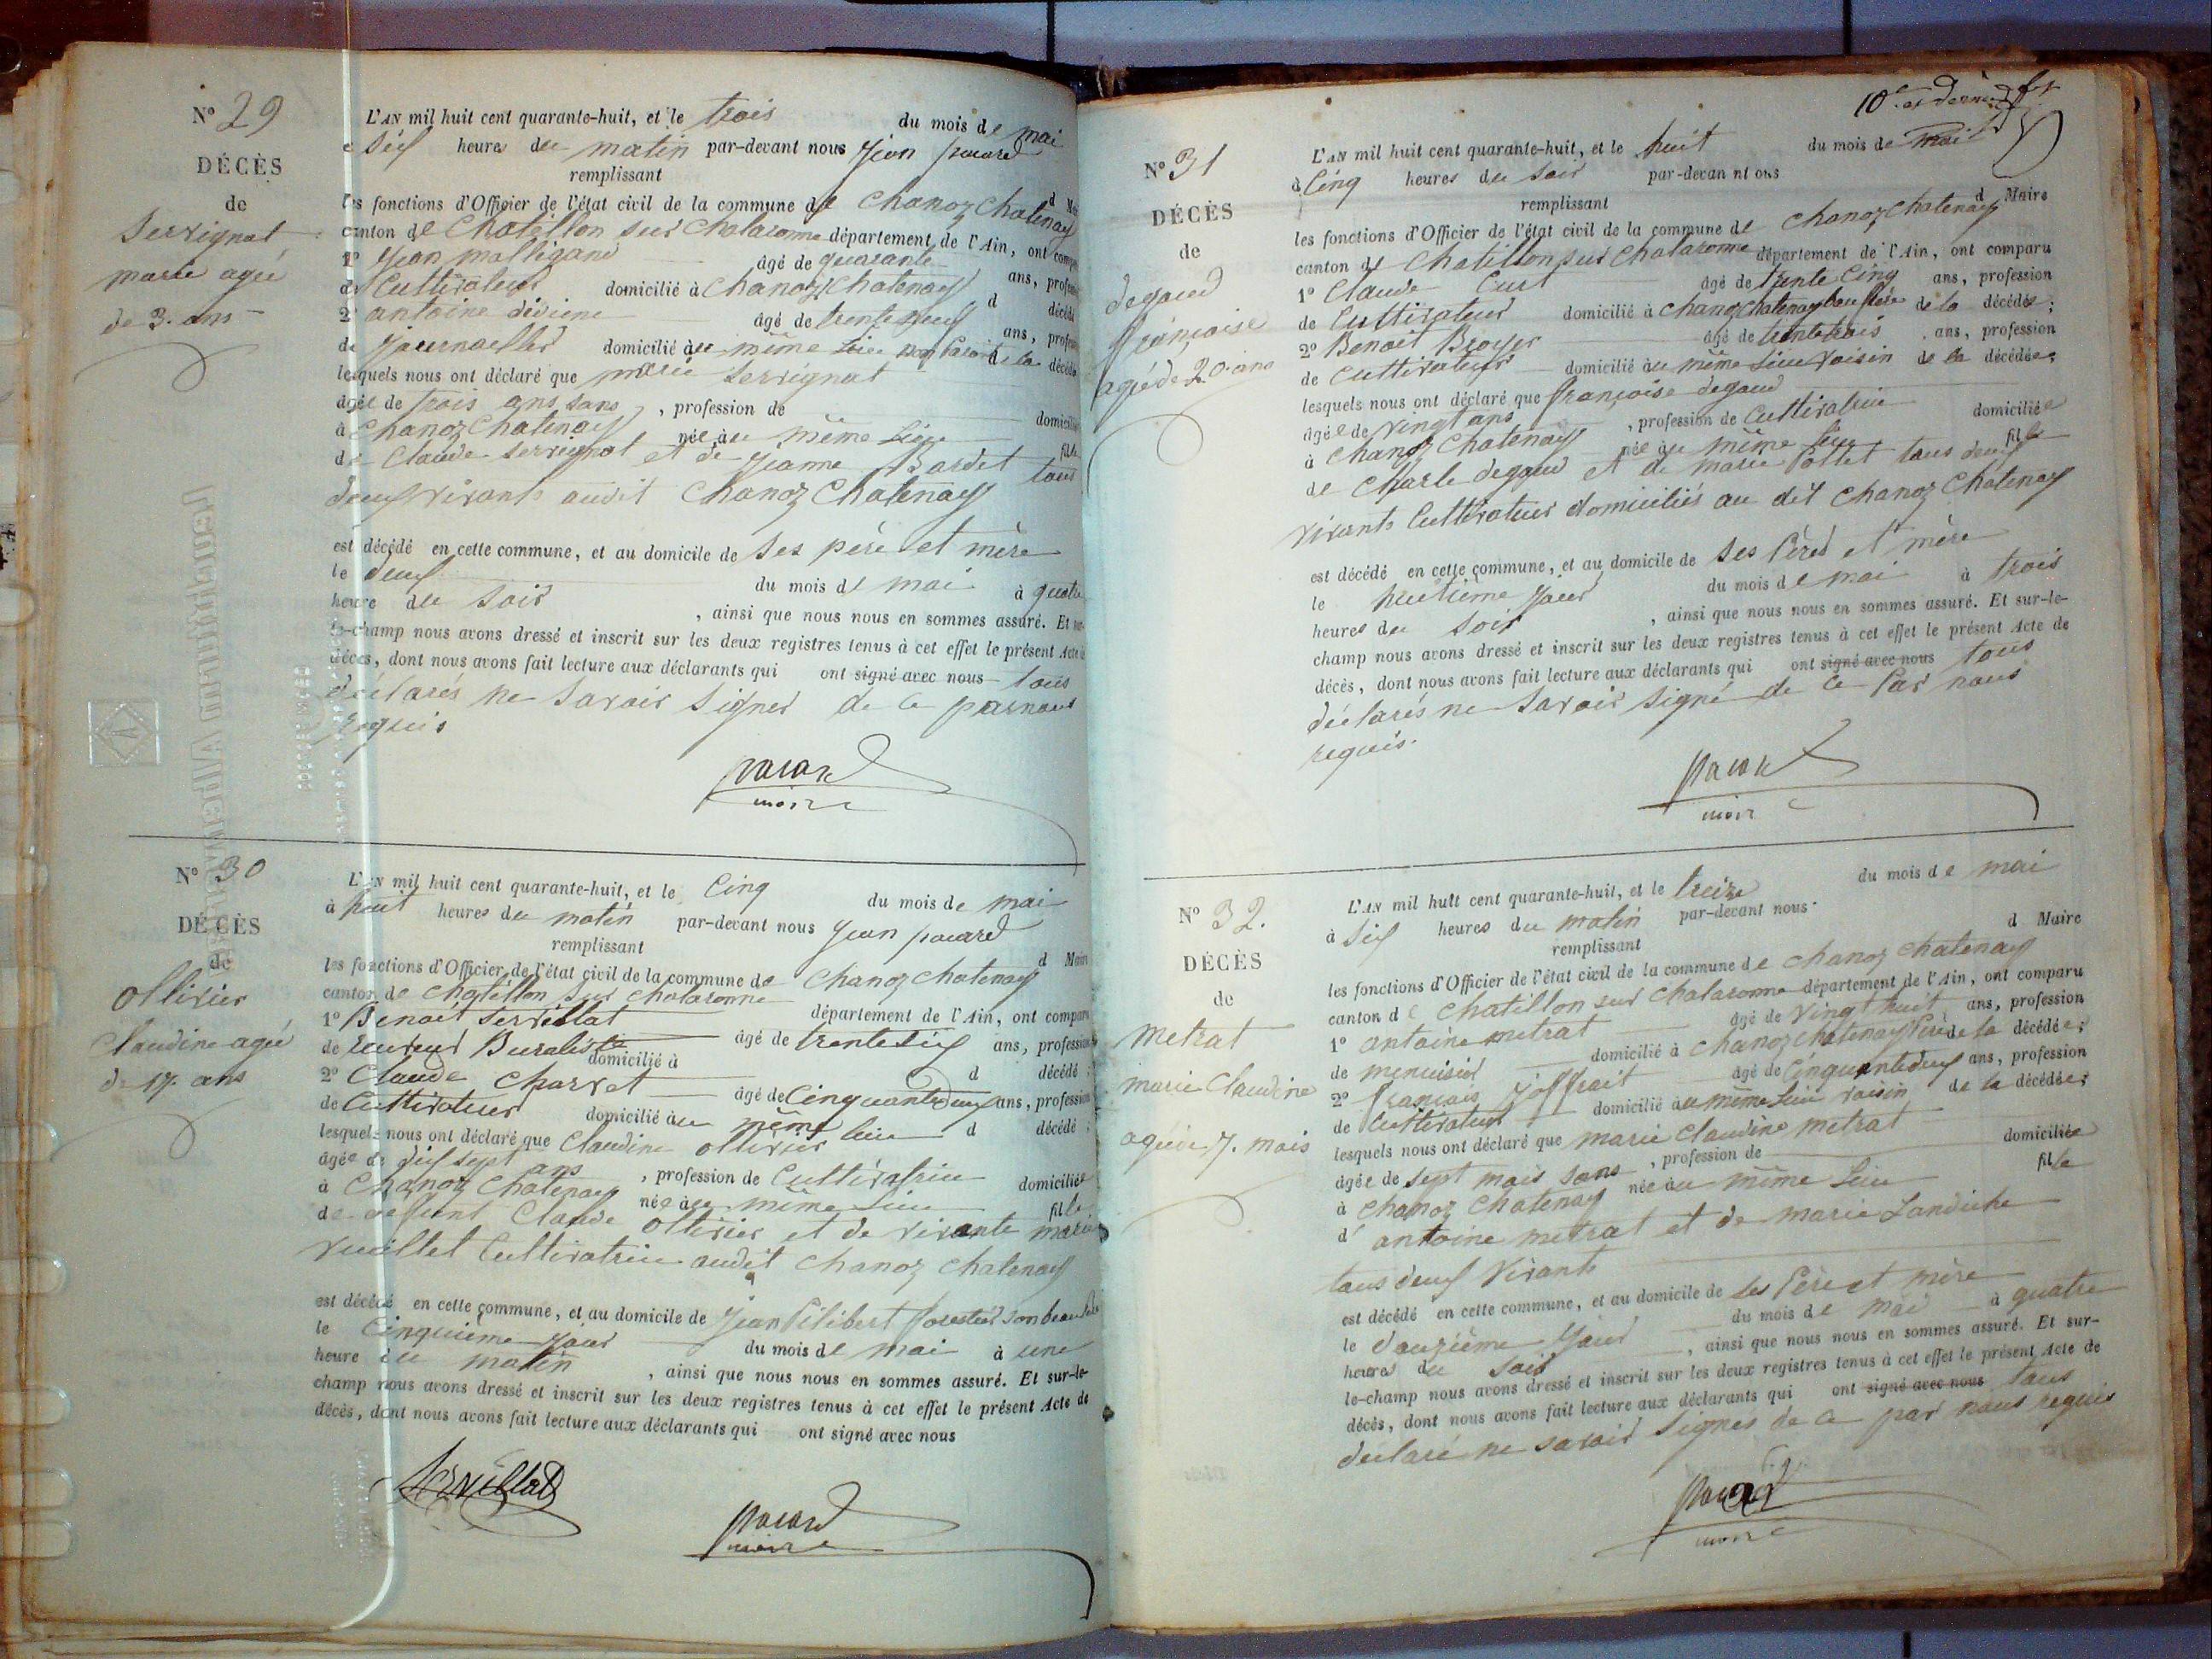 N° 29
DÉCÈS
de
Servignat
marie agée
de 3. ans
L'AN mil huit cent quarante-huit, et le trois du mois de mai
à Six heures du matin par-devant nous Jean pacard
remplissant
les fonctions d'Officier de l'état civil de la commune de Chanoz Chatenay d Mai
canton de Chatillon sur Chalaronne département de l'Ain, ont compa
1° Jean malligand âgé de quarante ans, profes
de Cultivateur domicilié à Chanoz Chatenay d décédé
2° antoine âgé de trente neuf ans, profes
de Journallier domicilié au même Lieu de la décédé
lesquels nous ont déclaré que marie Servignat
âgée de trois ans sans, profession de domicili
à Chanoz Chatenay née au même Lieu fille
de Claude Servignat et de Jeanne Bardet tous
deux vivants audit Chanoz Chatenay
est décédé en cette commune, et au domicile de Ses père et mère
le deux du mois de mai à quatre
heure du Soir, ainsi que nous nous en sommes assuré. Et sur-
le-champ nous avons dressé et inscrit sur les deux registres tenus à cet effet le présent Acte de
décès, dont nous avons fait lecture aux déclarants qui ont signé avec nous tous
déclarés ne Savoir Signer de ce par nous
requis
pacard
maire
N° 30
DÉCÈS
de
Ollivier
Claudine agée
de 17. ans
L'AN mil huit cent quarante-huit, et le Cinq du mois de mai
à huit heures du matin par-devant nous Jean pacard
remplissant d Maire
les fonctions d'Officier de l'état civil de la commune de Chanoz Chatenay
canton de Chatillon Sur Chalaronne département de l'Ain, ont comparu
1° Benoit Servillat âgé de trente Six ans, profession
de Buraliste domicilié à d décédé ;
2° Claude Charvet âgé de Cinquante deux ans, profession
de Cultivateur domicilié au même lieu d décédé ;
lesquels nous ont déclaré que Claudine Ollivier
âgée de dix Sept ans, profession de Cultivatrice domiciliée
à Chanoz Chatenay née au même Lieu fille
de defunt Claude Ollivier et de vivante marie
vuillet Cultivatrice audit Chanoz Chatenay
est décédé en cette commune, et au domicile de Jean Pilibert son beau
le Cinquième Jour du mois de mai à une
heure du matin, ainsi que nous nous en sommes assuré. Et sur-le-
champ nous avons dressé et inscrit sur les deux registres tenus à cet effet le présent Acte de
décès, dont nous avons fait lecture aux déclarants qui ont signé avec nous
Servillat
pacard
maire
10e et dernier
N° 31
DÉCÈS
de
degaud
françoise
agée de 20. ans
L'AN mil huit cent quarante-huit, et le huit du mois de mai
à Cinq heures du Soir par-devan nt ous
remplissant d Maire
les fonctions d'Officier de l'état civil de la commune de Chanoz Chatenay
canton de Chatillon sur Chalaronne département de l'Ain, ont comparu
1° Claude Curt âgé de trente Cinq ans, profession
de Cultivateur domicilié à Chanoz Chatenay beau frère de la décédée ;
2° Benoit Broyer âgé de trente trois ans, profession
de Cultivateur domicilié au même Lieu voisin de la décédée ;
lesquels nous ont déclaré que françoise degaud
âgée de vingt ans, profession de Cultivatrice domiciliée
à Chanoz Chatenay née au même lieu fille
de Charle degaud et de marie Pottet tous deux
vivants Cultivateur domiciliés au dit Chanoz Chatenay
est décédé en cette commune, et au domicile de Ses Père et mère
le huitième Jour du mois de mai à trois
heures du Soir, ainsi que nous nous en sommes assuré. Et sur-le-
champ nous avons dressé et inscrit sur les deux registres tenus à cet effet le présent Acte de
décès, dont nous avons fait lecture aux déclarants qui ont signé avec nous tous
déclarés ne Savoir Signé de Ce Par nous
requis.
pacard
maire
N° 32.
DÉCÈS
de
metrat
marie Claudine
agée de 7. mois
L'AN mil huit cent quarante-huit, et le treize du mois de mai
à Six heures du matin par-devant nous
remplissant d Maire
les fonctions d'Officier de l'état civil de la commune de Chanoz Chatenay
canton de Chatillon sur Chalaronne département de l'Ain, ont comparu
1° antoine metrat âgé de vingt huit ans, profession
de menuisier domicilié à Chanoz Chatenay Père de la décédée ;
2° françois Joffrait âgé de Cinquante deux ans, profession
de Cultivateur domicilié au même Lieu voisin de la décédée ;
lesquels nous ont déclaré que marie Claudine metrat
âgée de Sept mois Sans, profession de domiciliée
à Chanoz Chatenay née au même Lieu fille
d' antoine metrat et de marie Landiche
tous deux vivants
est décédé en cette commune, et au domicile de Ses Père et mère
le douzième Jour du mois de mai à quatre
heures du Soir, ainsi que nous nous en sommes assuré. Et sur-
le-champ nous avons dressé et inscrit sur les deux registres tenus à cet effet le présent Acte de
décès, dont nous avons fait lecture aux déclarants qui ont signé avec nous tous
declaré ne savoir Signer de ce par nous requis
pacard
maire